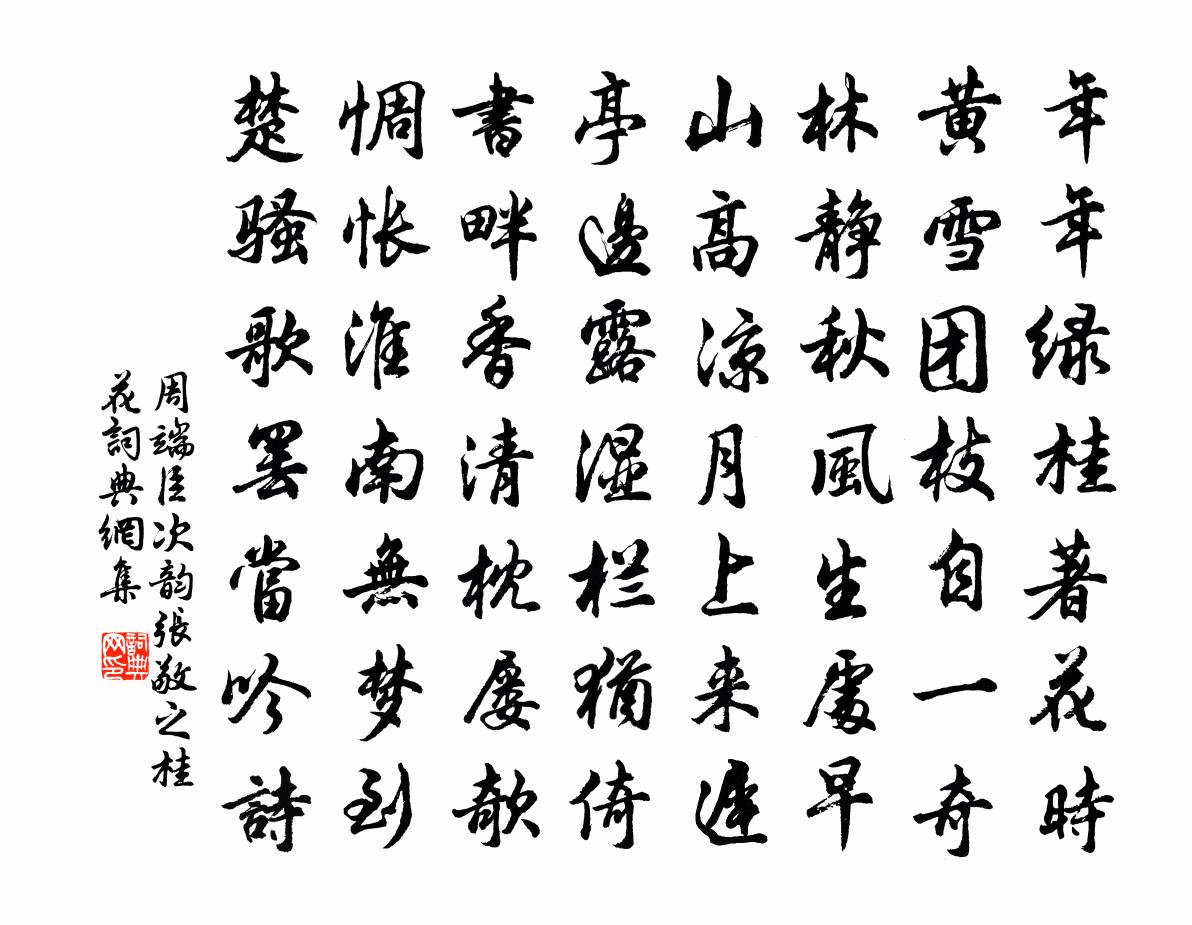 年年绿桂著花時
黄雪团枝自一奇
林静秋風生處早
山高凉月上来遲
亭邊露湿栏猶倚
書畔香清枕屡欹
惆怅淮南無梦到
楚骚歌罢當吟詩
周端臣次韵張敬之桂
花詞典網集
詞典网印